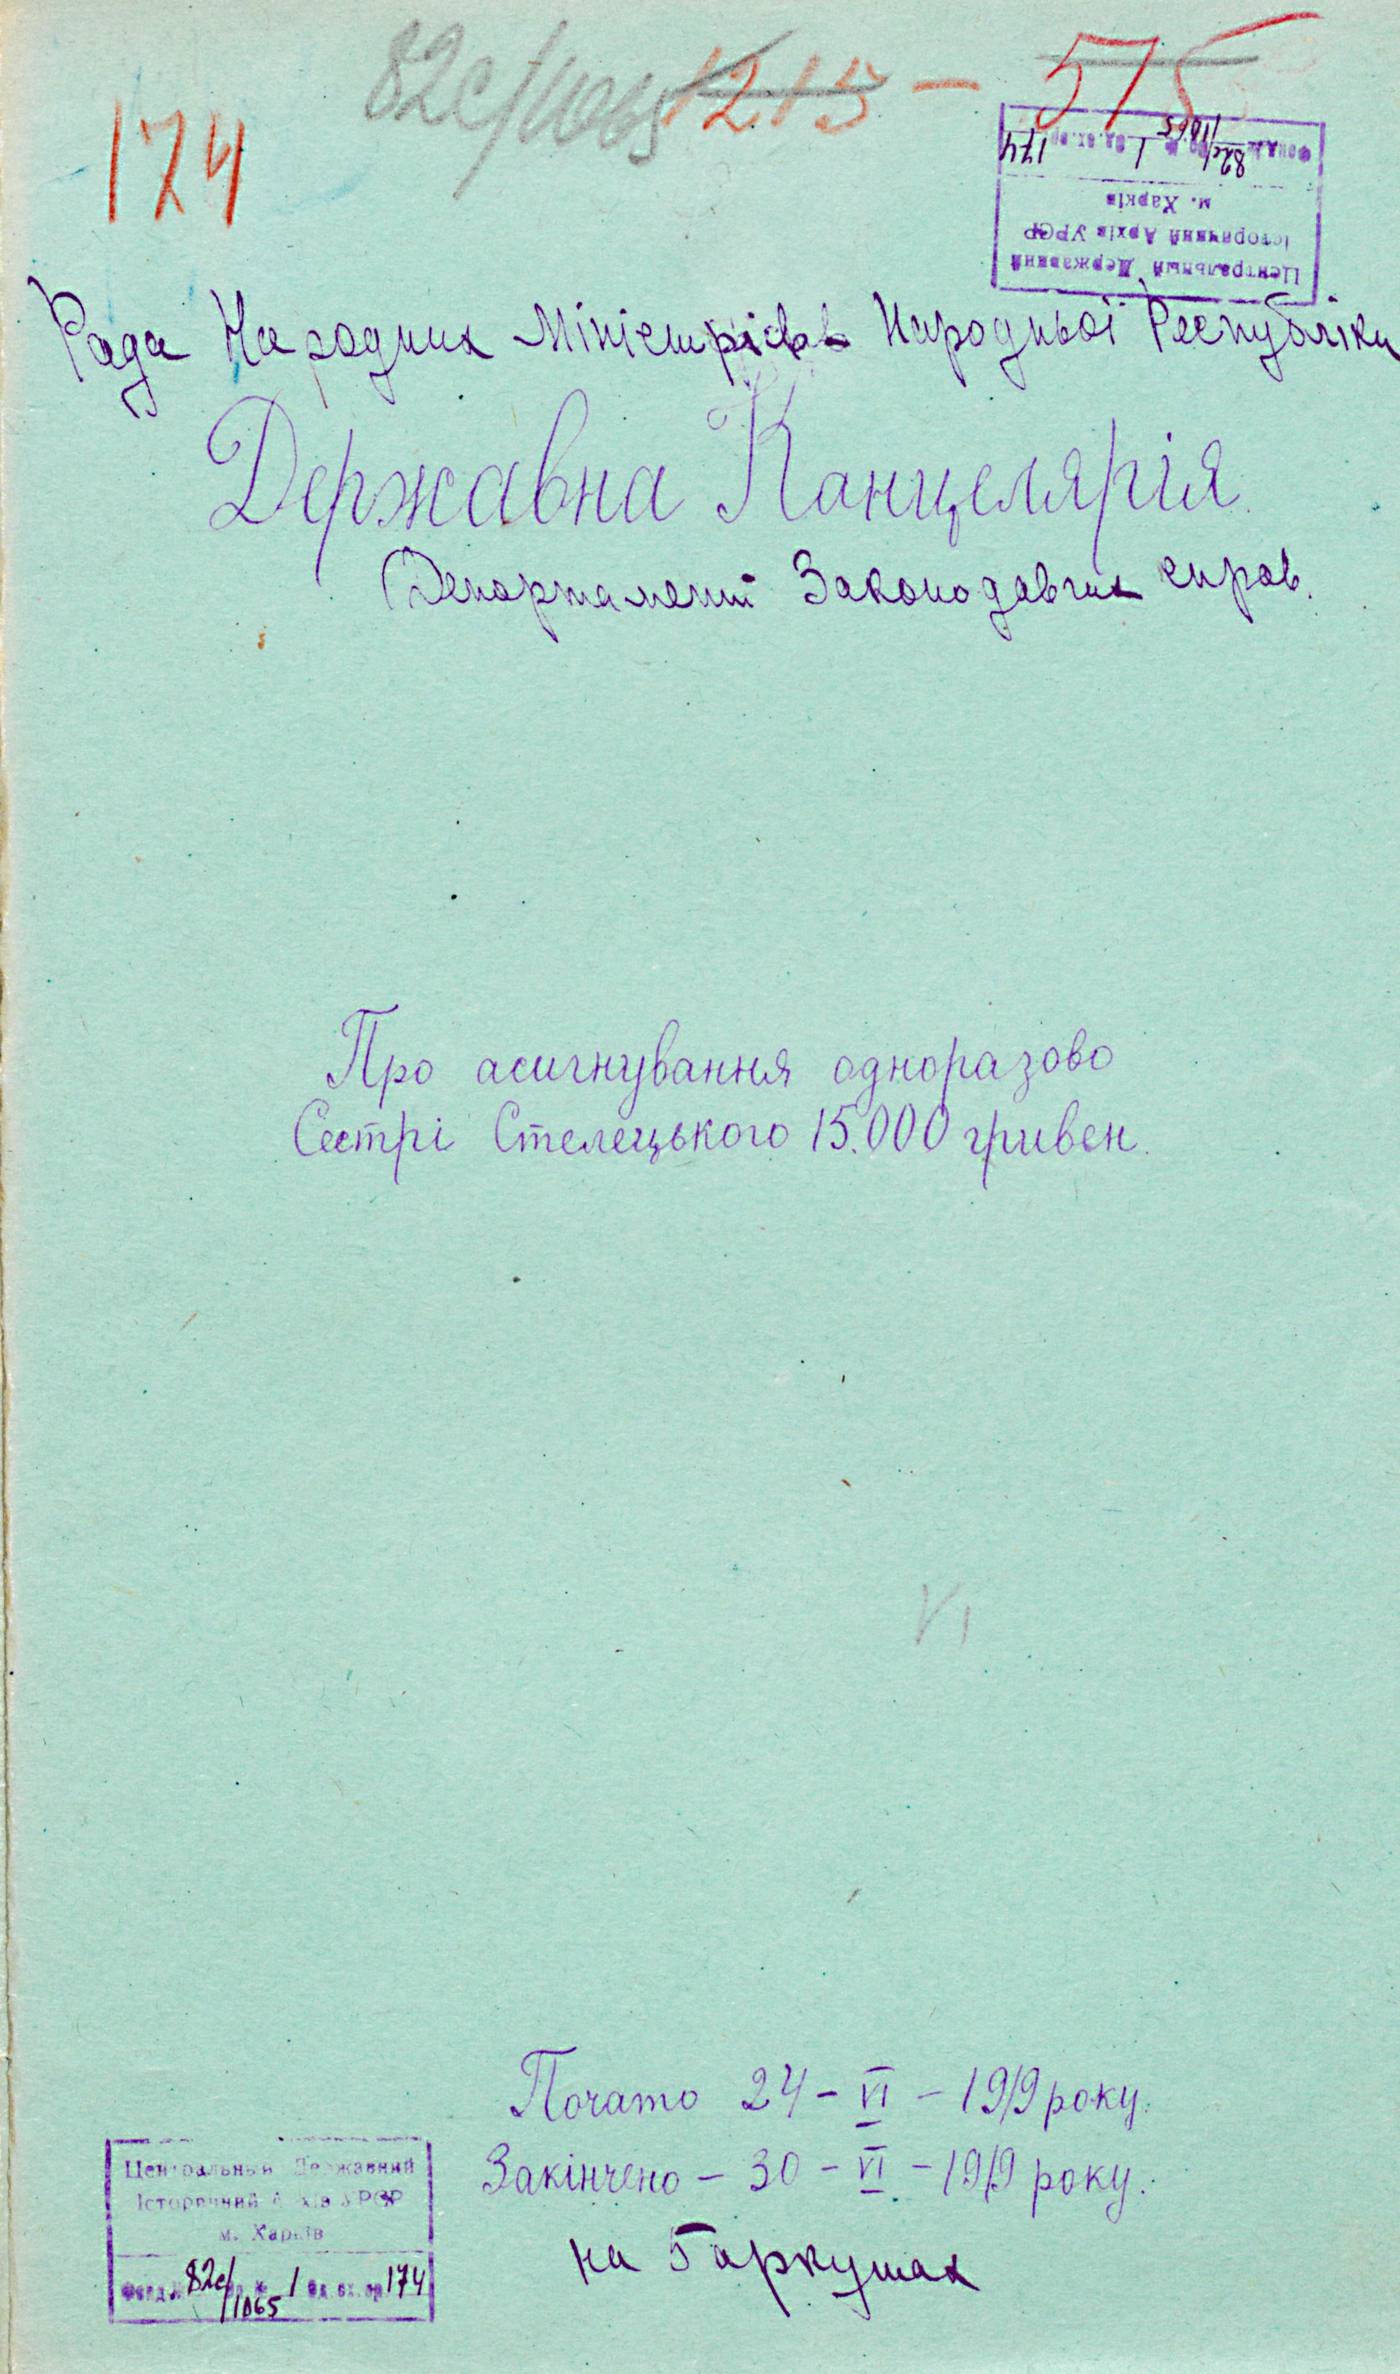 82с/1065 1215 - 575
174
Центральный Державний
Історичний Архів УРСР
м. Харків
Фонд № 82с/1065 оп. № 1 од. зх. ор. 174
Рада Народних Міністрів Народньої Республіки
Державна Канцелярія
Департамент Законодавчих справ.
Про асигнування одноразово
Сестрі Стелецького 15.000 гривен.
VI
Почато 24 - VI - 1919 року.
Закінчено - 30 - VI - 1919 року.
на 5 аркушах
Центральный Державний
Історичний Архів УРСР
м. Харків
Фонд № 82с/1065 оп. № 1 од. зх. ор. 174